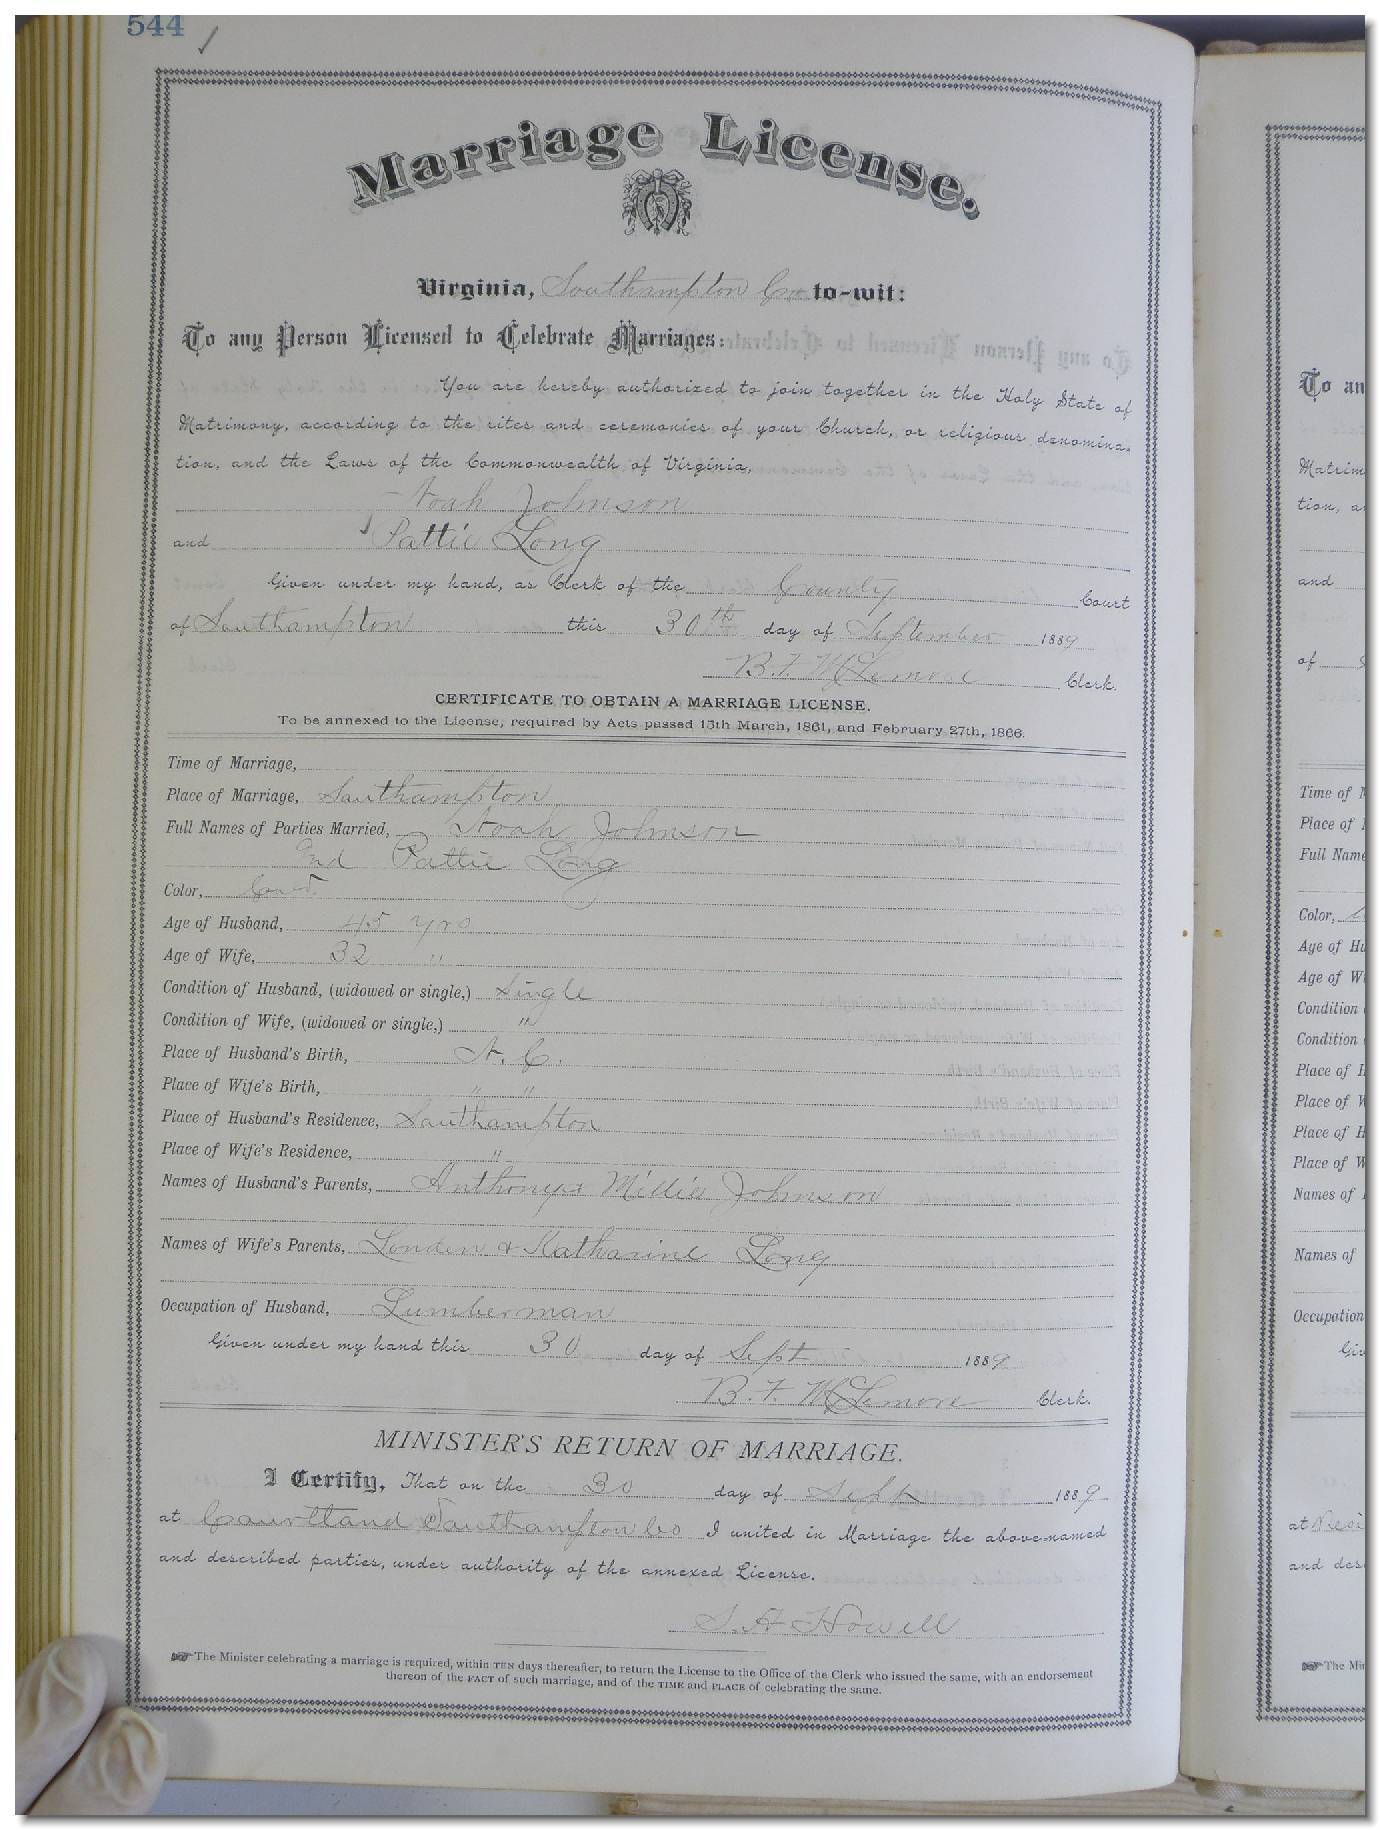 544
Marriage License.
Virginia, Southampton Co to-wit:
To any Person Licensed to Celebrate Marriages:
You are hereby authorized to join together in the Holy State of
Matrimony, according to the rites and ceremonies of your Church, or religious denomina-
tion, and the Laws of the Commonwealth of Virginia,
Noah Johnson
and Pattie Long
Given under my hand, as Clerk of the County Court
of Southampton this 30th day of September 1889
B. F. McLemore Clerk.
CERTIFICATE TO OBTAIN A MARRIAGE LICENSE.
To be annexed to the License, required by Acts passed 15th March, 1861, and February 27th, 1866.
Time of Marriage,
Place of Marriage, Southampton
Full Names of Parties Married, Noah Johnson
and Pattie Long
Color,
Age of Husband, 45 yrs
Age of Wife, 32 "
Condition of Husband, (widowed or single,) Single
Condition of Wife, (widowed or single,) "
Place of Husband's Birth, N. C.
Place of Wife's Birth, " "
Place of Husband's Residence, Southampton
Place of Wife's Residence, "
Names of Husband's Parents, Anthony & Millie Johnson
Names of Wife's Parents, London & Katharine Long
Occupation of Husband, Lumberman
Given under my hand this 30 day of Sept 1889
B. F. McLemore Clerk.
MINISTER'S RETURN OF MARRIAGE.
I Certify, That on the 30 day of Sept 1889
at Courtland Southampton Co I united in Marriage the above-named
and described parties, under authority of the annexed License.
S. H Howell
The Minister celebrating a marriage is required, within TEN days thereafter, to return the License to the Office of the Clerk who issued the same, with an endorsement
thereon of the FACT of such marriage, and of the TIME and PLACE of celebrating the same.
To an
Matrim
tion, a
and
of
Time of
Place of
Full Name
Color,
Age of Hu
Age of Wi
Condition
Condition
Place of H
Place of W
Place of H
Place of W
Names of
Names of
Occupation
Giv
at Resi
and des
The Min